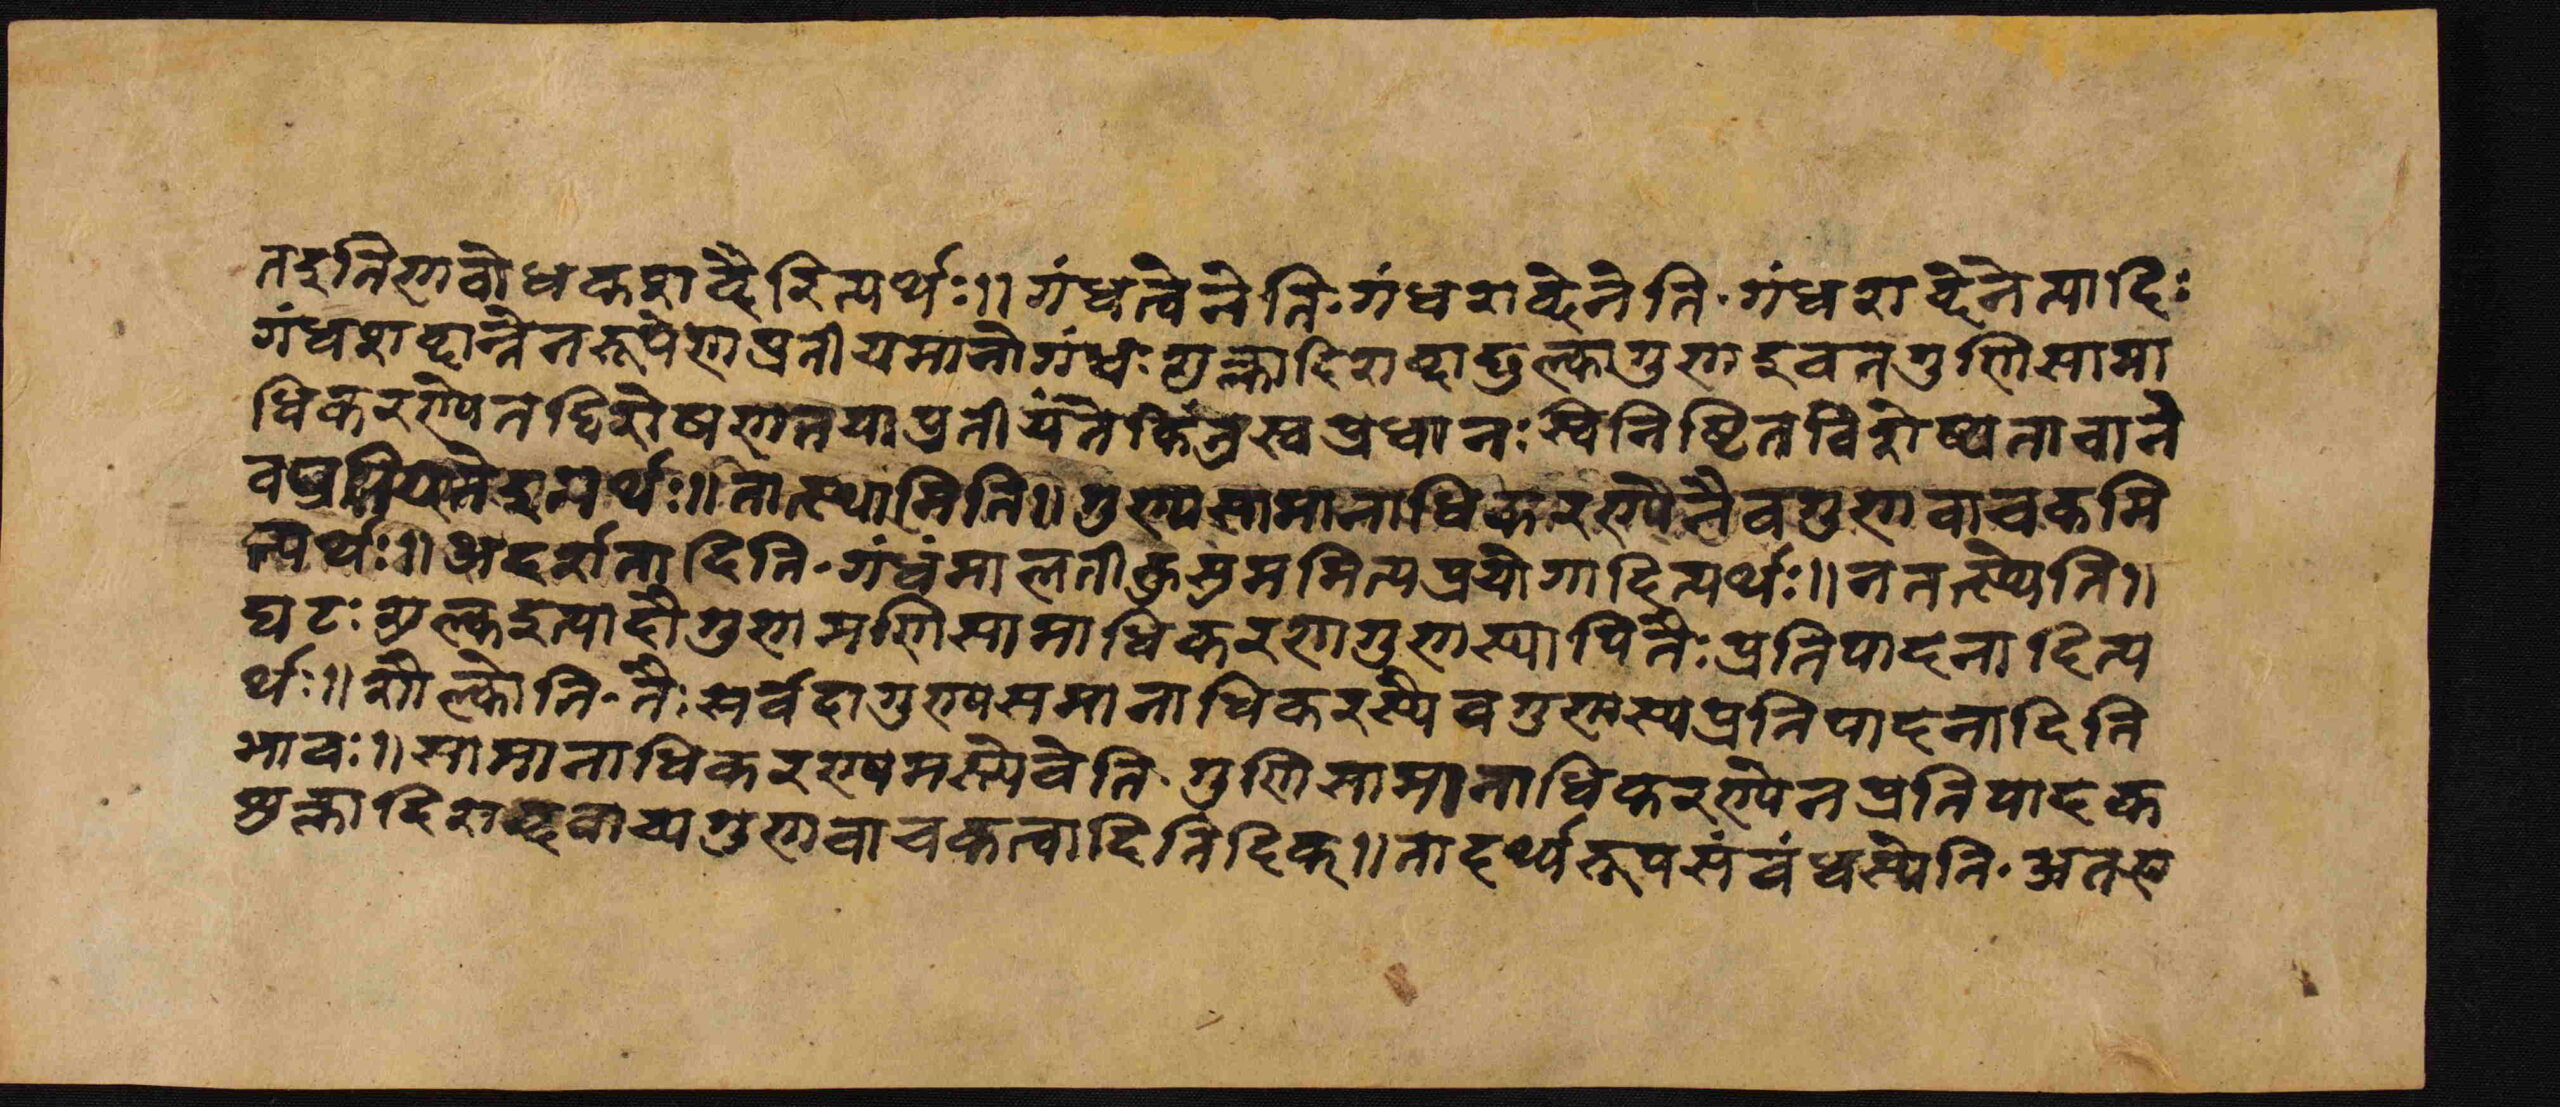 तद्गुतिरणवोधकशब्दैरित्यर्थः॥ गंधत्वेनेति॰गंधशब्देनेति॰गंधशब्देनेत्यादिः
गंधशब्दान्तेनरूपेणप्रतीयमानोगंधः शुक्लादिशब्दाछुक्लगुणइवनगुणिसामा
धिकरण्येनद्विशेषणतयाप्रतीयंतेकिंतुस्वप्रधानः स्वनिष्टितविशेष्यतावाने
वप्रतियतेइत्यर्थः॥तात्स्थामिति॥गुण्यसामानाधिकरण्येनैवगुणवाचकमि
त्यर्थः॥अदर्शनादिति॰गंधंमालतीकुसुममित्यप्रयोगादित्यर्थः॥नतत्स्थेति॥
घटःशुल्कइत्यादौगुणमणिसामाधिकरणगुणस्यापितैःप्रतिपादनादित्य
र्थः॥शौल्केति॰तैःसर्वदागुण्यसमानाधिकरस्यैवगुणस्यप्रतिपादनादिति
भावः॥सामानाधिकरण्यमस्त्येवेति॰गुणिसामानाधिकरण्येनप्रतिपादक
शुक्लादिशब्दवाच्यगुणवाचकत्वादितिदिक्॥तादर्थ्यरूपसंवंधस्येति॰अतए